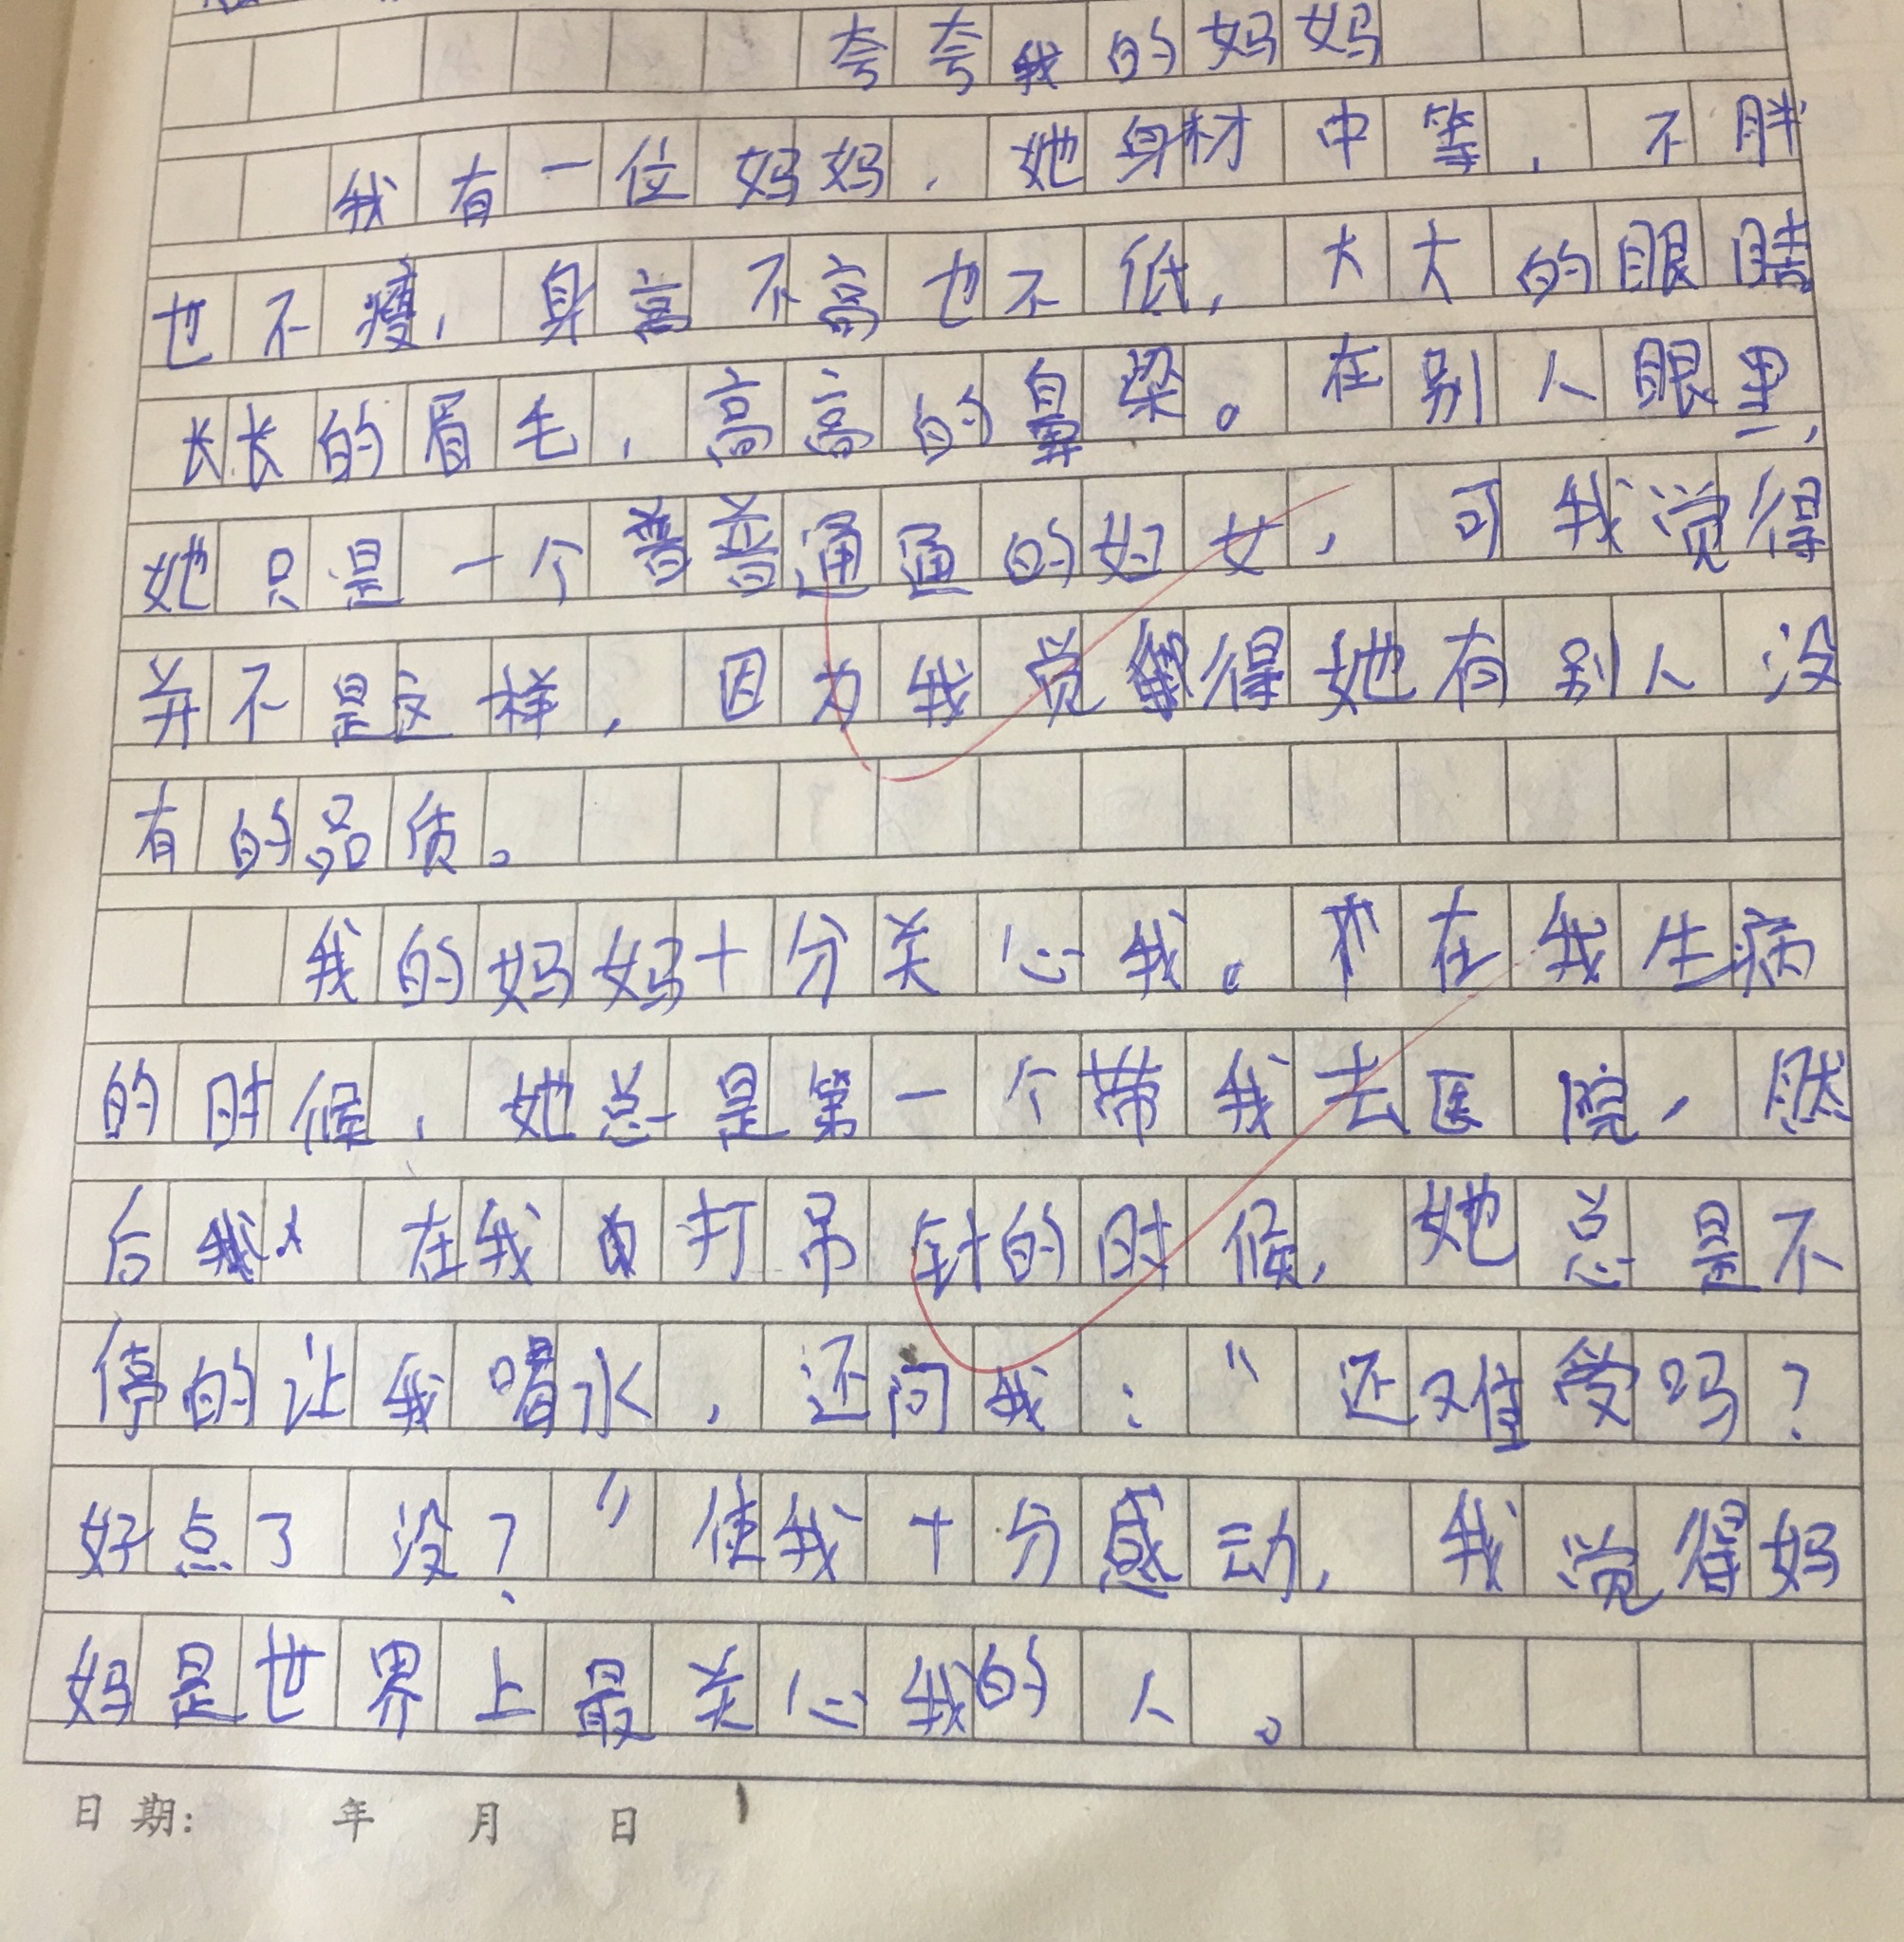 夸夸我的妈妈
我有一位妈妈，她身材中等，不胖
也不瘦，身高不高也不低，大大的眼睛
长长的眉毛，高高的鼻梁。在别人眼里，
她只是一个普普通通的妇女，可我觉得
并不是这样，因为我觉得她有别人没
有的品质。
我的妈妈十分关心我。在我生病
的时候，她总是第一个带我去医院，然
后在我打吊针的时候，她总是不
停的让我喝水，还问我：“还难受吗？
好点了没？”使我十分感动，我觉得妈
妈是世界上最关心我的人。
日期：　年　月　日